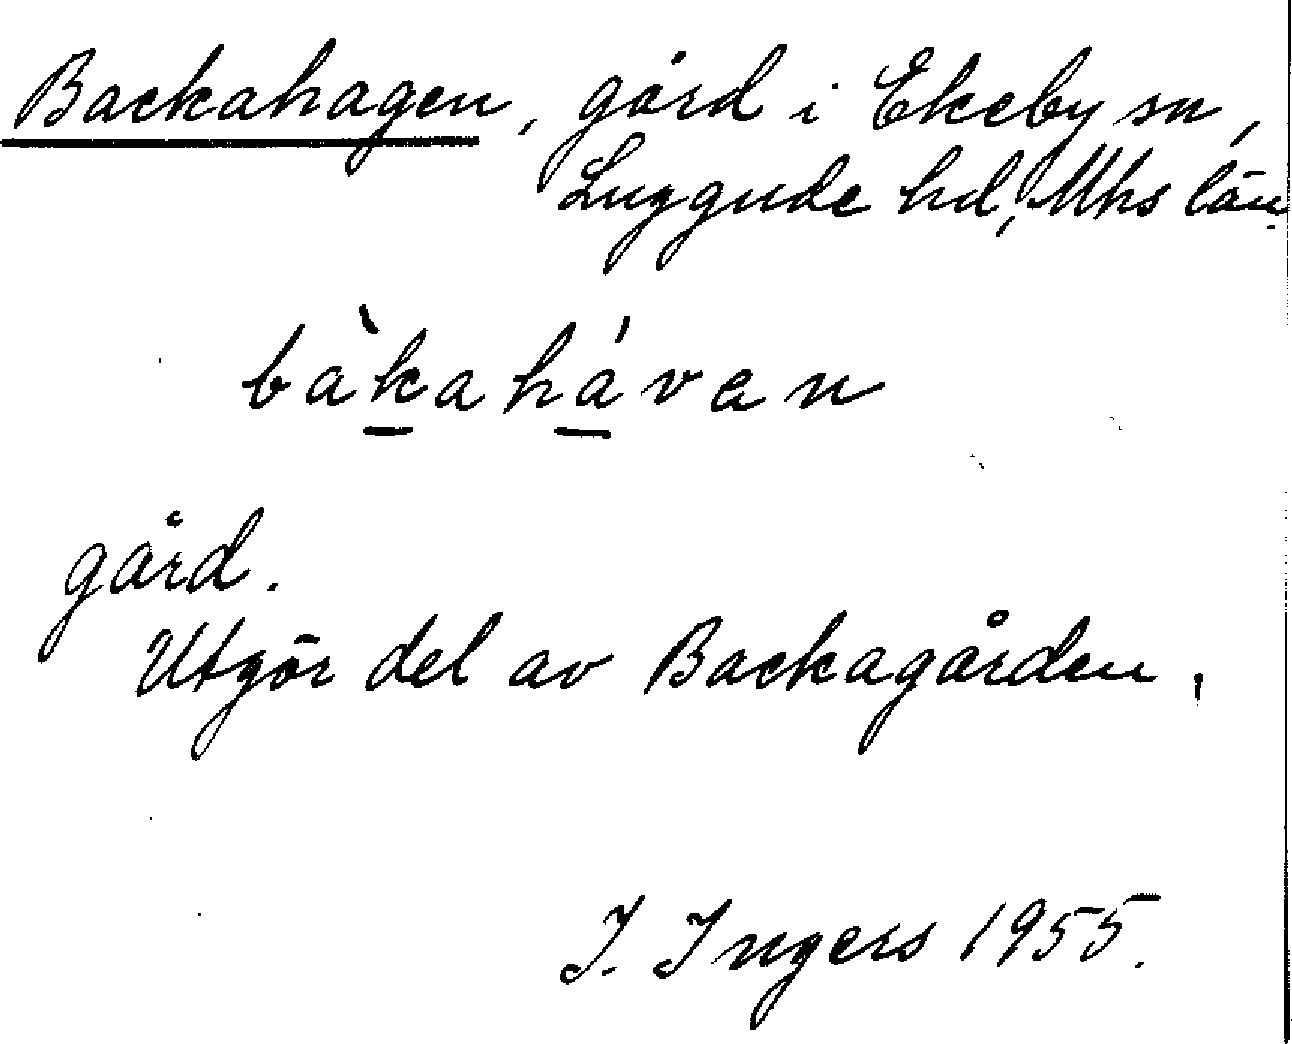 Backahagen, gård i Ekeby sn,
Luggude hd, Mhs län.
bàkahávan
gård.
Utgör del av Backagården.
I. Ingers 1955.